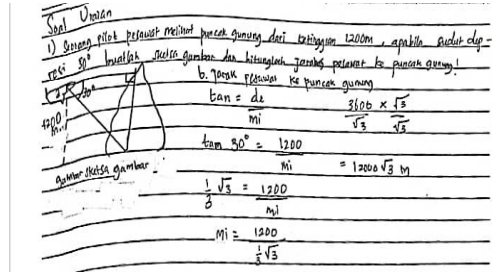 Soal Uraian
1) Seorang pilot pesawat melihat puncak gunung dari ketinggian 1200m, apabila sudut dep-
resi 30° buatlah sketsa gambar dan hitunglah jarak pesawat ke puncak gunung!
30°
1200
m
gambar sketsa gambar.
b. Jarak pesawat ke puncak gunung
tan = de
mi
tan 30° = 1200
mi
1/3 √3 = 1200
mi
mi = 1200
1/3 √3
3600 × √3
√3 √3
= 1200√3 m